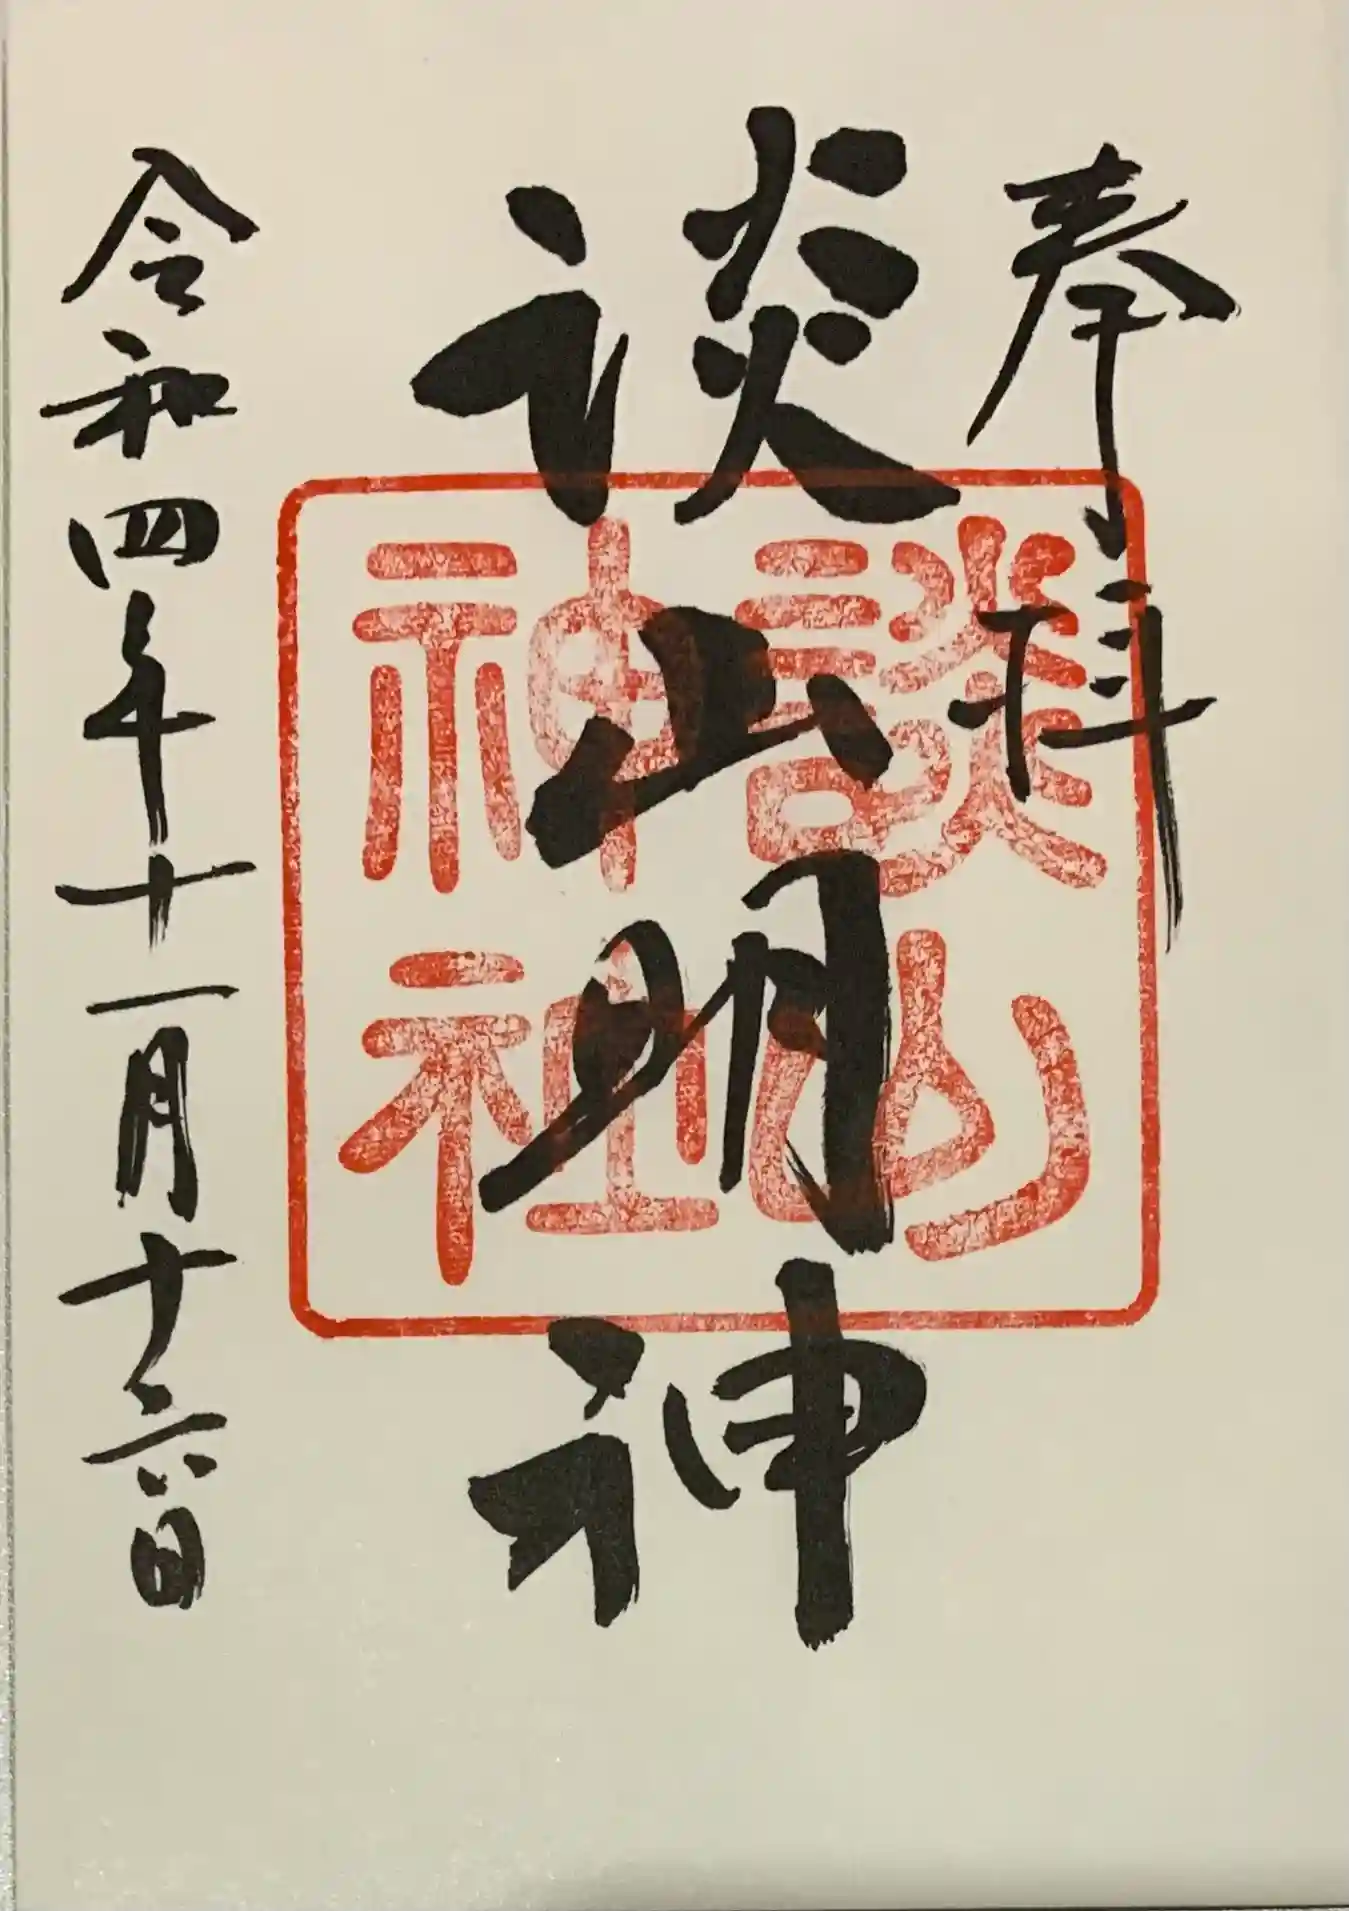 奉拝
談山明神
談山
神社
令和四年十一月十六日